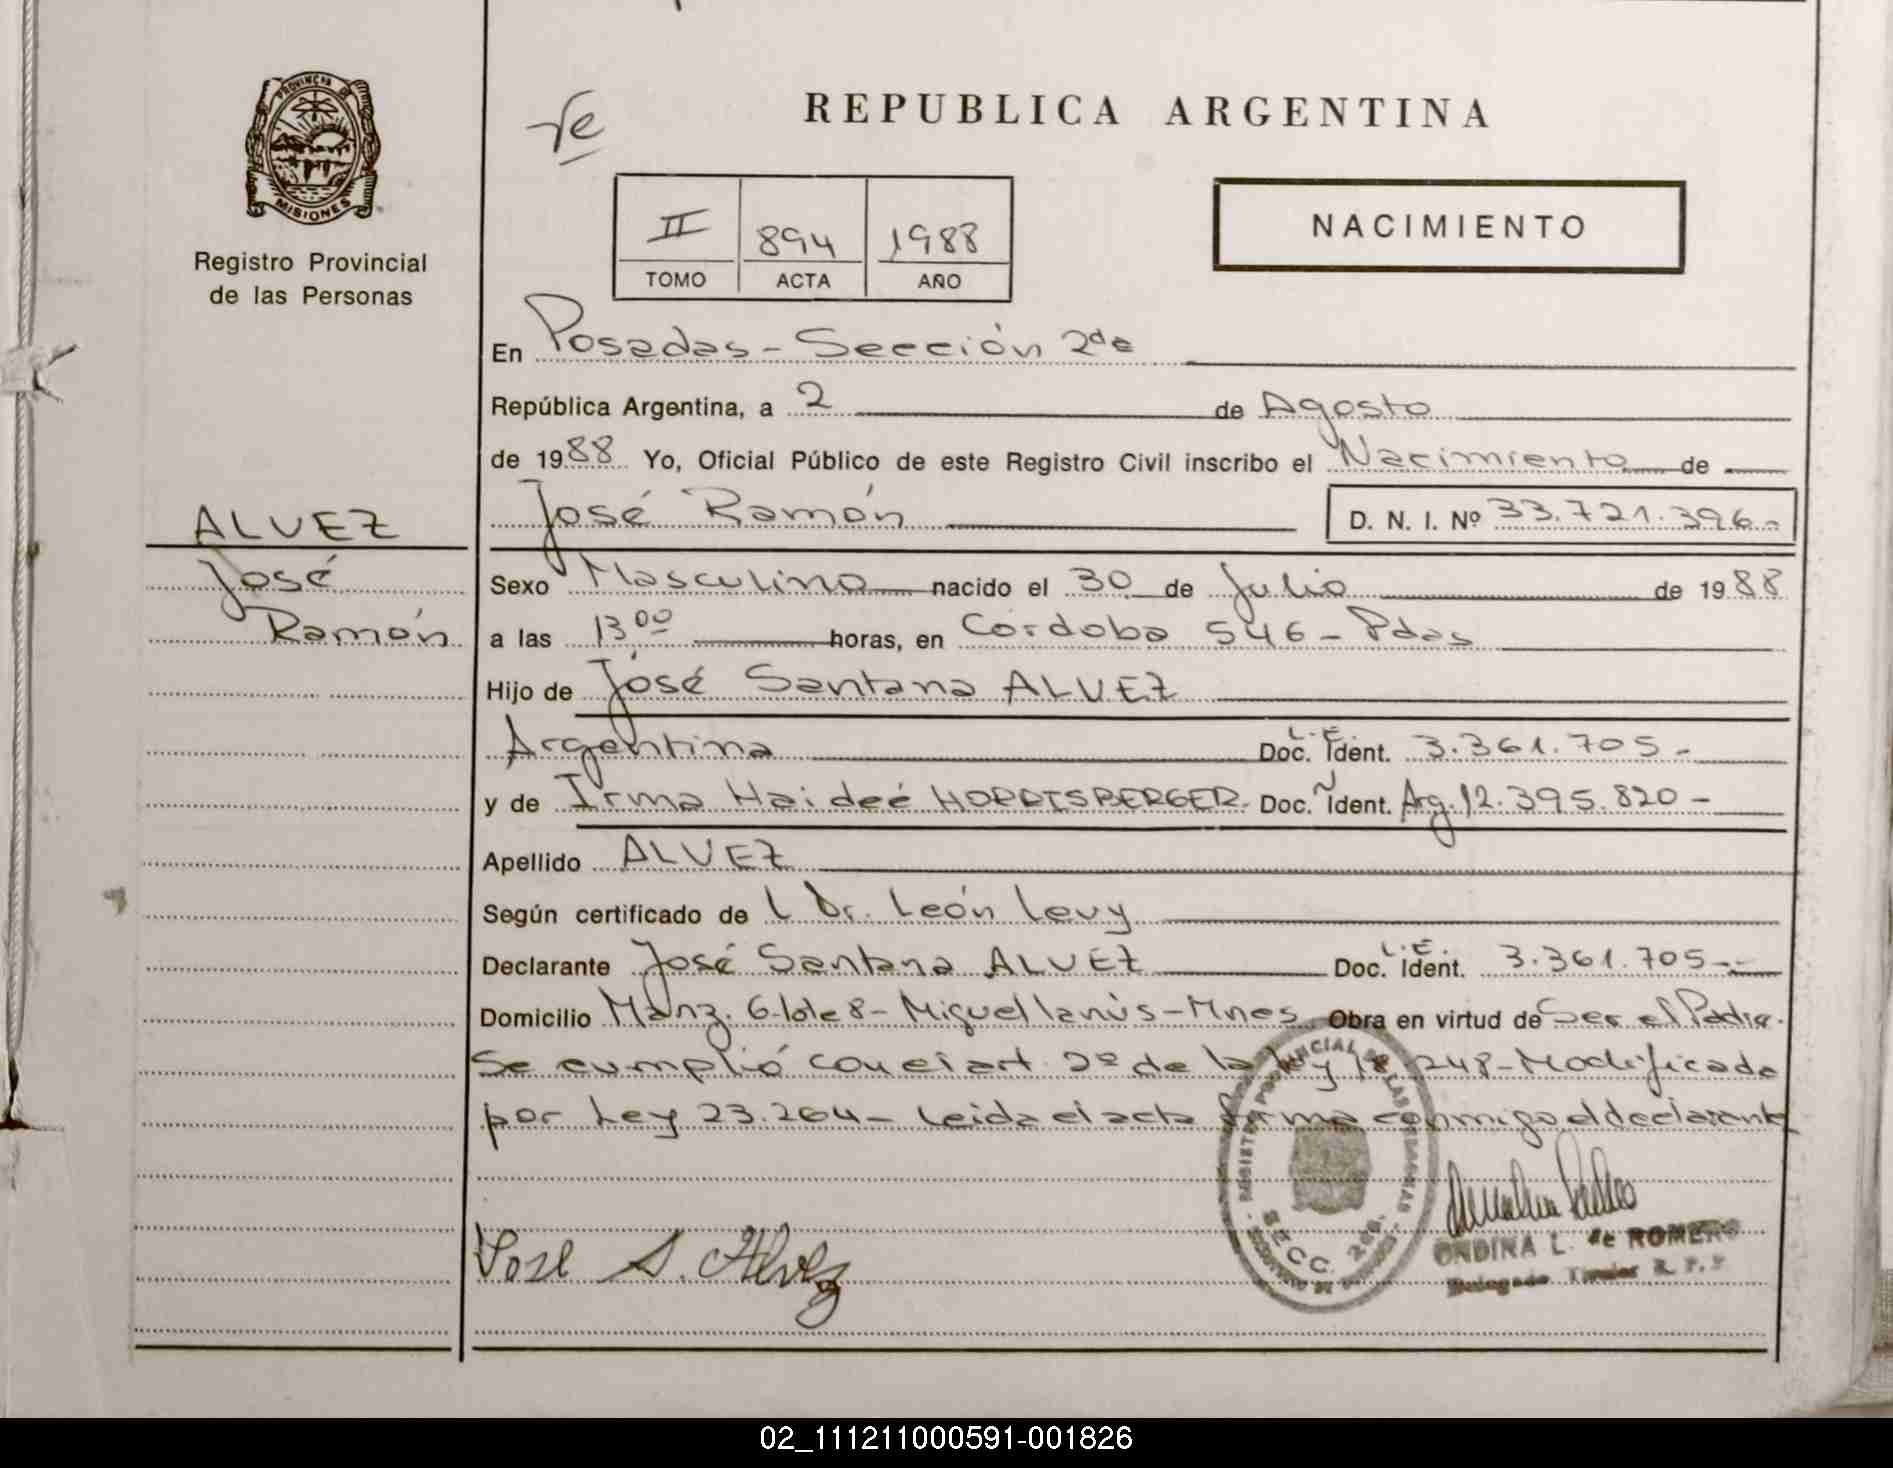 REPUBLICA ARGENTINA
PROVINCIA DE
MISIONES
Registro Provincial
de las Personas
II 894 1988
TOMO ACTA AÑO
NACIMIENTO
En Posadas - Sección 2da
República Argentina, a 2 de Agosto
de 1988 Yo, Oficial Público de este Registro Civil inscribo el Nacimiento de
José Ramón D. N. I. Nº 33.721.396.-
ALVEZ
José
Ramón
Sexo Masculino nacido el 30 de Julio de 1988
a las 13 00 horas, en Córdoba 546 - Pdas
Hijo de José Santana ALVEZ
Argentina L.E. Doc. Ident. 3.361.705.-
y de Irma Haideé Doc. Ident. Arg. 12.395.820 -
Apellido ALVEZ
Según certificado de Dr. León Levy
Declarante José Santana ALVEZ L.E. Doc. Ident. 3.361.705.-
Domicilio Manz. 6-lote 8 - Miguel Lanús - Mnes Obra en virtud de Ser el Padre.
Se cumplió con el art. 2º de la ley 18.248 - Modificada
por Ley 23.264 - Leida el acta firma conmigo el declarante
SECC. 2da.
Jose S. Alvez
ONDINA L. de ROMERO
02_111211000591-001826